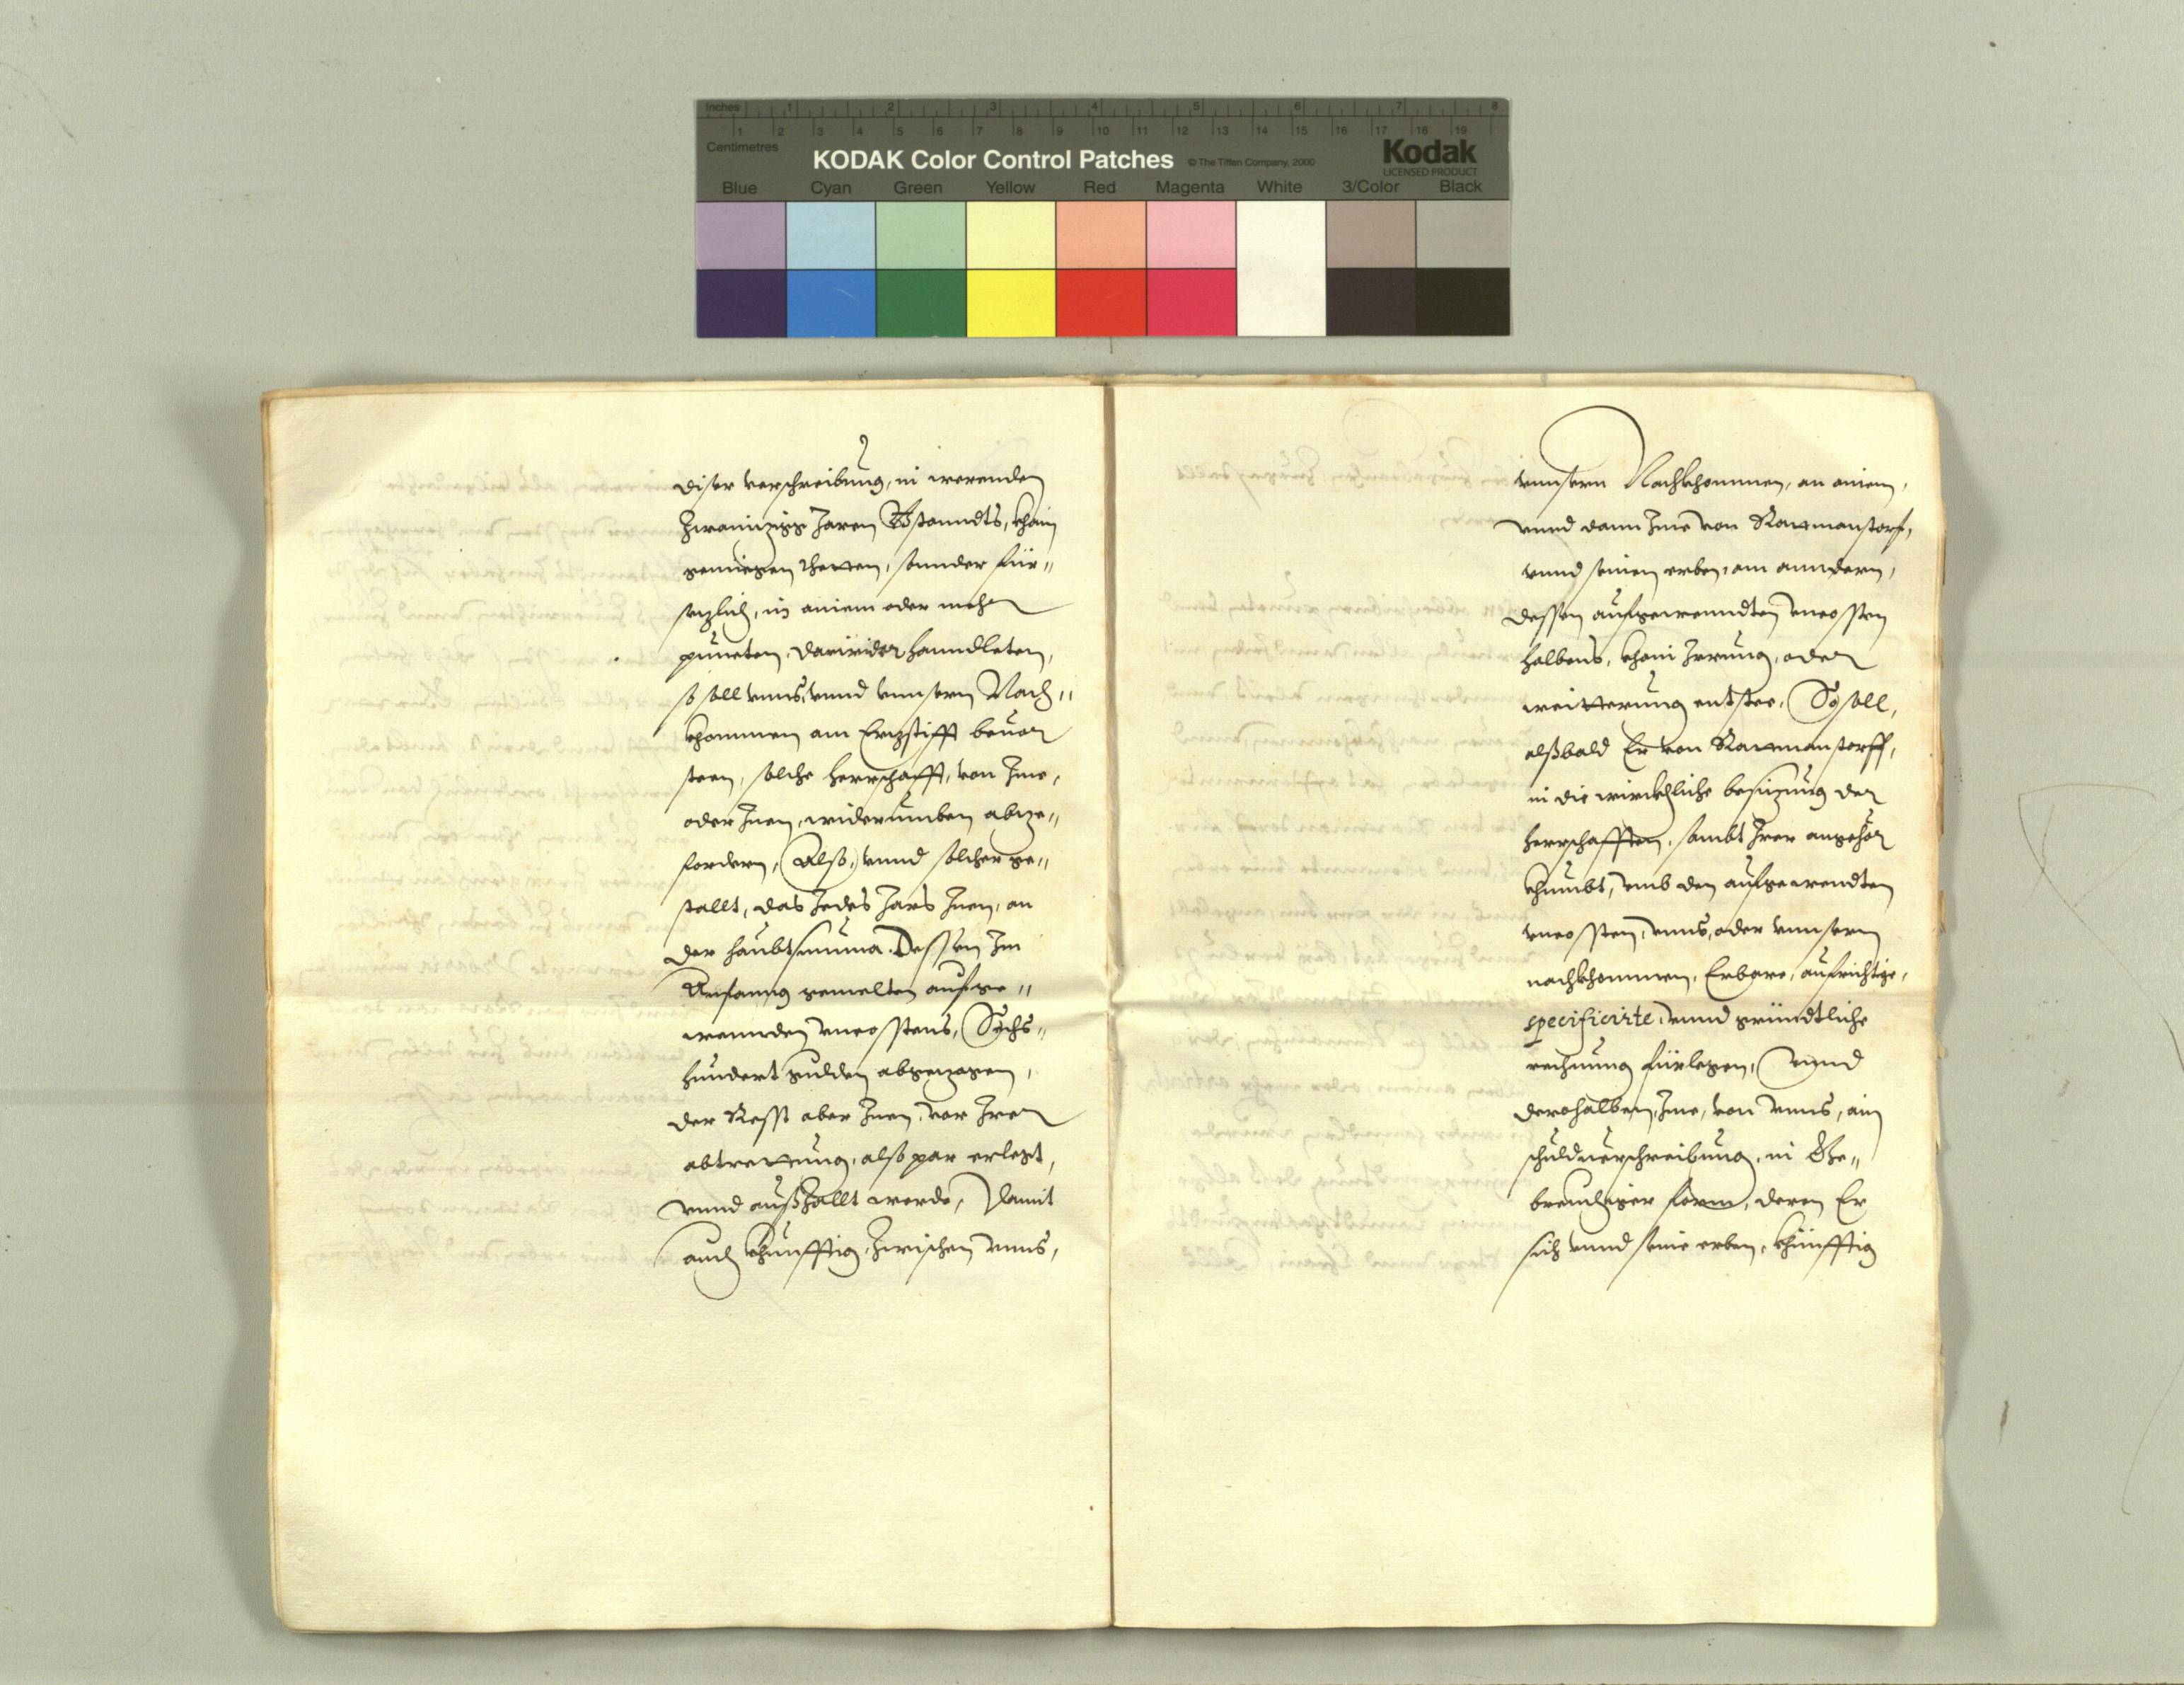 Inches 1 2 3 4 5 6 7 8
1 2 3 4 5 6 7 8 9 10 11 12 13 14 15 16 17 18 19
Centimetres
KODAK Color Control Patches © The Tiffen Company, 2000 Kodak
LICENSED PRODUCT
Blue Cyan Green Yellow Red Magenta White 3/Color Black
diser verschreibung, in werenden
Zwainzigg Jaren Bstanndts, khain
geniegen thetten, sonnder für„
sezlich, in ainem oder mehr
puncten, darwider hanndleten,
so soll vnns, vnnd vnnsern Nach„
khommen am Erzstifft beuor
steen, solche herrschafft, von Ime,
oder Inen, widerumben abze„
fordern, Also, vnnd solcher ge„
stallt, das Jedes Jars Inen, an
der haubtsumma. Dessen Im
Anfanng gemelten aufge„
wennden vncosstens, Sechs„
hundert gulden abgezogen,
der Resst aber Inen, vor Irer
abtrettung, also par erlegt,
vnnd außzallt werde, Damit
auch khunfftig, Zwischen vnns,
vnnsern Nachkhommen, an ainem,
vnnd dann Ime von Rattmanstorf,
vnnd seinen erben, am anndern,
dessen aufgewenndten vncossten
halbens, khain Irrung, oder
weitterung entstee, So soll,
alßbald Er von Rattmanstorff,
in die würckhliche besizung der
herrschafften, sambt Irer angehör
khumbt, vmb den aufgewendten
vncossten, vnns, oder vnnsern
nachkhommen, Erbare, aufrichtige,
specificirte, vnnd gründtliche
rechnung fürlegen, Vnnd
derohalben, Ime, von vnns, ain
schuldtuerschreibung, in Ge„
breuchiger form, deren Er
sich vnnd seine erben, khünfftig